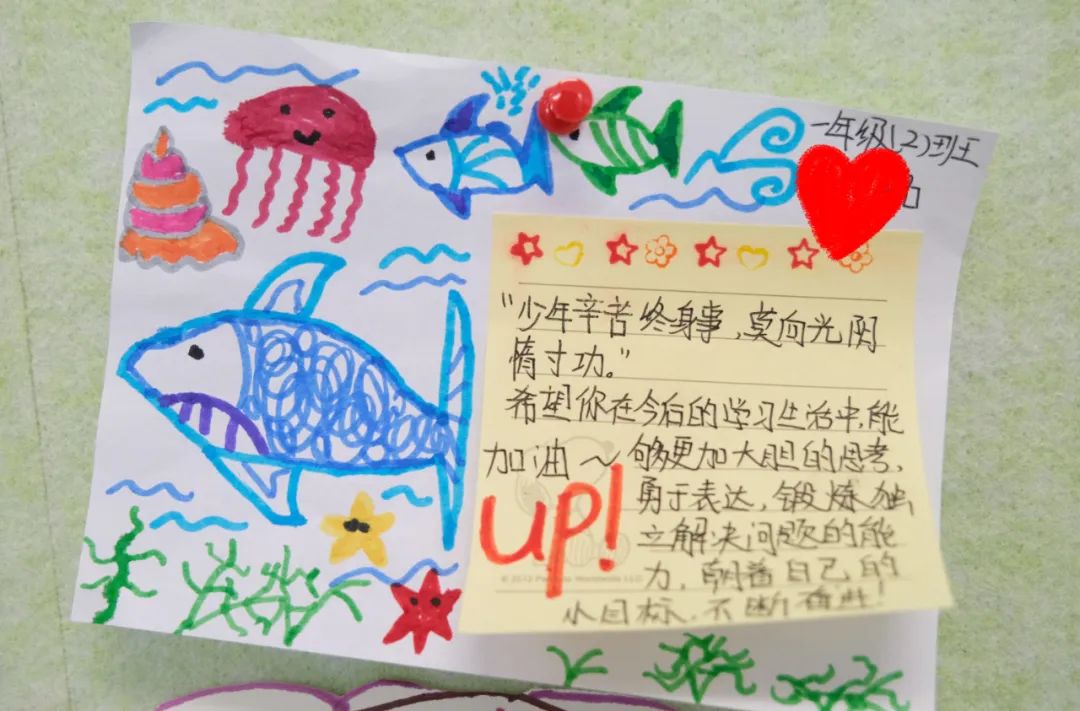 一年级(2)班
"少年辛苦终身事,莫向光阴
惰寸功。"
希望你在今后的学习生活中,能
够更加大胆的思考,
勇于表达,锻炼独
立解决问题的能
力,朝着自己的
小目标,不断奋进!
加油~
up!